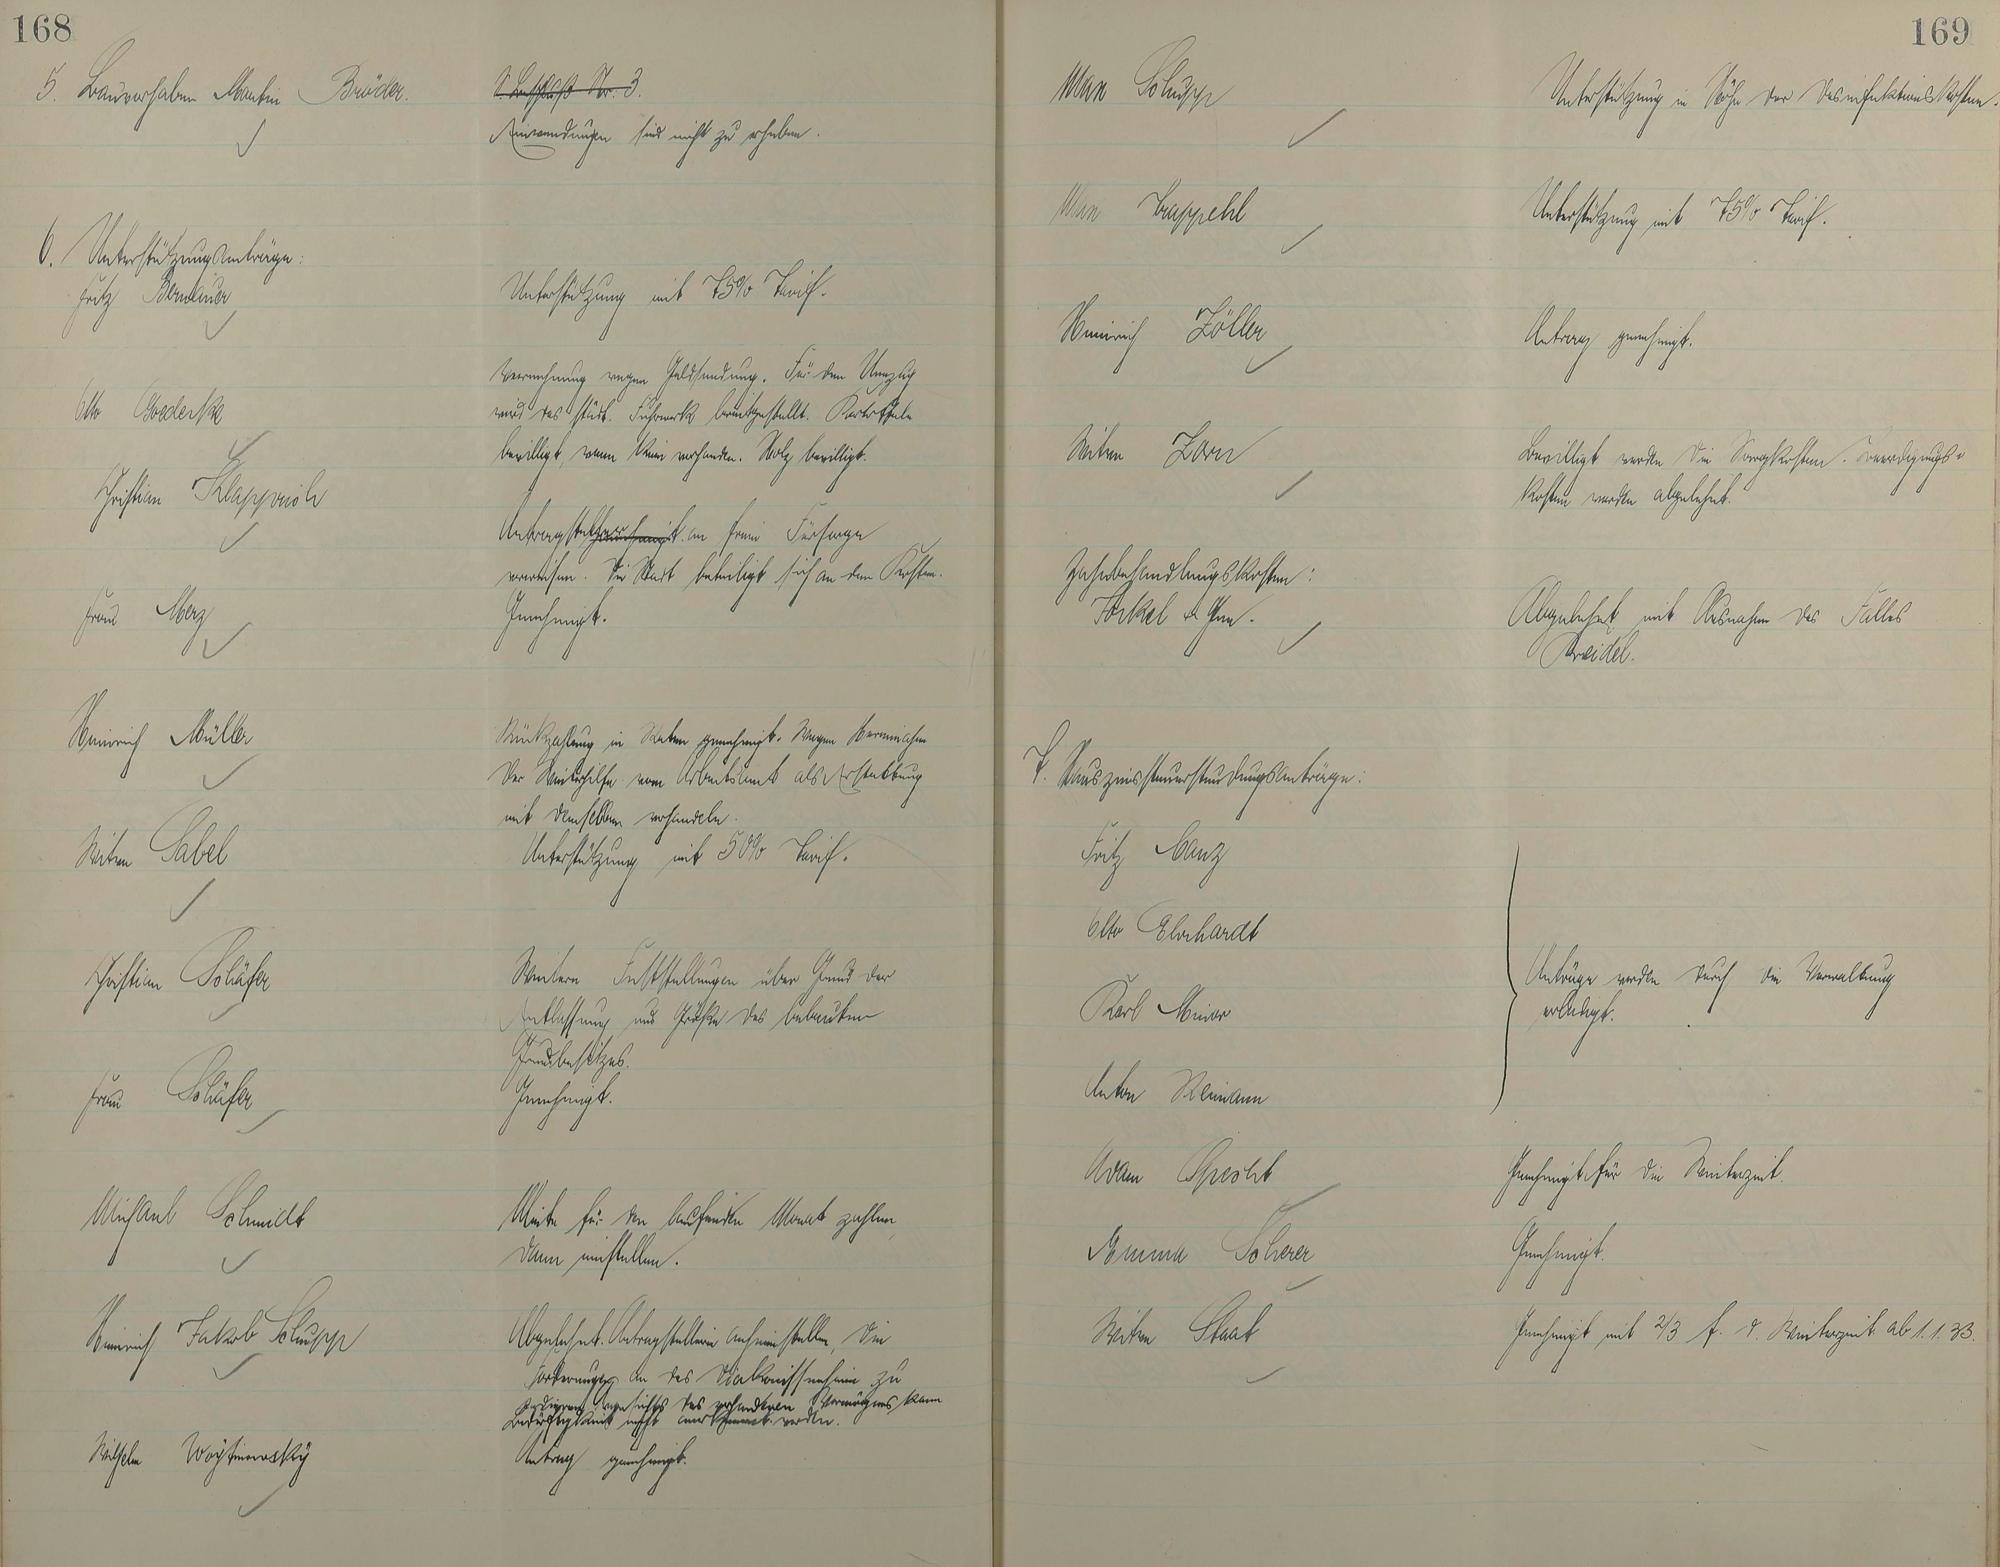 168
5. Bauvorhaben Martin Bröder.
S. Beschluß Nr. 3.
Einwendungen sind nicht zu erheben.
6. Unterstützungsanträge:
Fritz Bernauer
Unterstützung mit 75% Tarif.
Otto
Vernehmung wegen Geldsendung. Für den Umzug
wird das städt. Fuhrwerk bereitgestellt. Kartoffeln
bewilligt, wenn keine vorhanden. Holz bewilligt.
Christian Klapproth
Antragstellerin an freie Fürsorge
verweisen. Die Stadt beteiligt sich an den Kosten.
Frau Merz
Genehmigt.
Heinrich Müller
Rückzahlung in Raten genehmigt. Wegen Hereinnahme
der Winterhilfe vom Arbeitsamt als Erstattung
mit demselben verhandeln.
Witwe Sabel
Unterstützung mit 50% Tarif.
Christian Schäfer
Weitere Feststellungen über Grund der
Entlassung und Größe des bebauten
Grundbesitzes.
Frau Schäfer
Genehmigt.
Michael Schmidt
Miete für den laufenden Monat zahlen,
dann einstellen.
Heinrich Jakob Schupp
Abgelehnt. Antragstellerin anheimstellen, die
Forderungen an das Diakonissenheim zu
zedieren. Angesichts des vorhandenen Vermögens kann
Bedürftigkeit nicht anerkannt werden.
Wilhelm Woytinowsky
Antrag genehmigt.
169
Max Schupp
Unterstützung in Höhe der Desinfektionskosten.
Max Trappehl
Unterstützung mit 75% Tarif.
Heinrich Zöller
Antrag genehmigt.
Witwe Zorn
Bewilligt werden die Sargkosten. Beerdigungs-
kosten werden abgelehnt.
Zahnbehandlungskosten:
Jockel & Gen.
Abgelehnt mit Ausnahme des Falles
Kreidel.
7. Hauszinssteuerstundungsanträge:
Fritz Manz
Otto Ehrhardt
Karl Minor
Anton Reimann
Anträge werden durch die Verwaltung
erledigt.
Adam Specht
Genehmigt für die Winterzeit.
Emma Scherer
Genehmigt.
Witwe Staat
Genehmigt mit 2/3 f. d. Winterzeit ab 1.1.33.